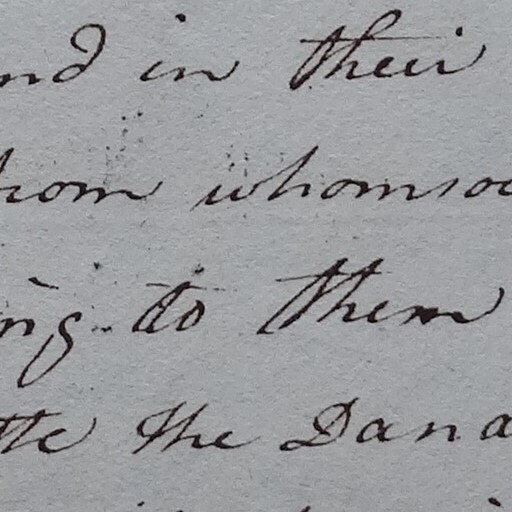 nd in their
hom whomsoe
ing to them
tte the Dana